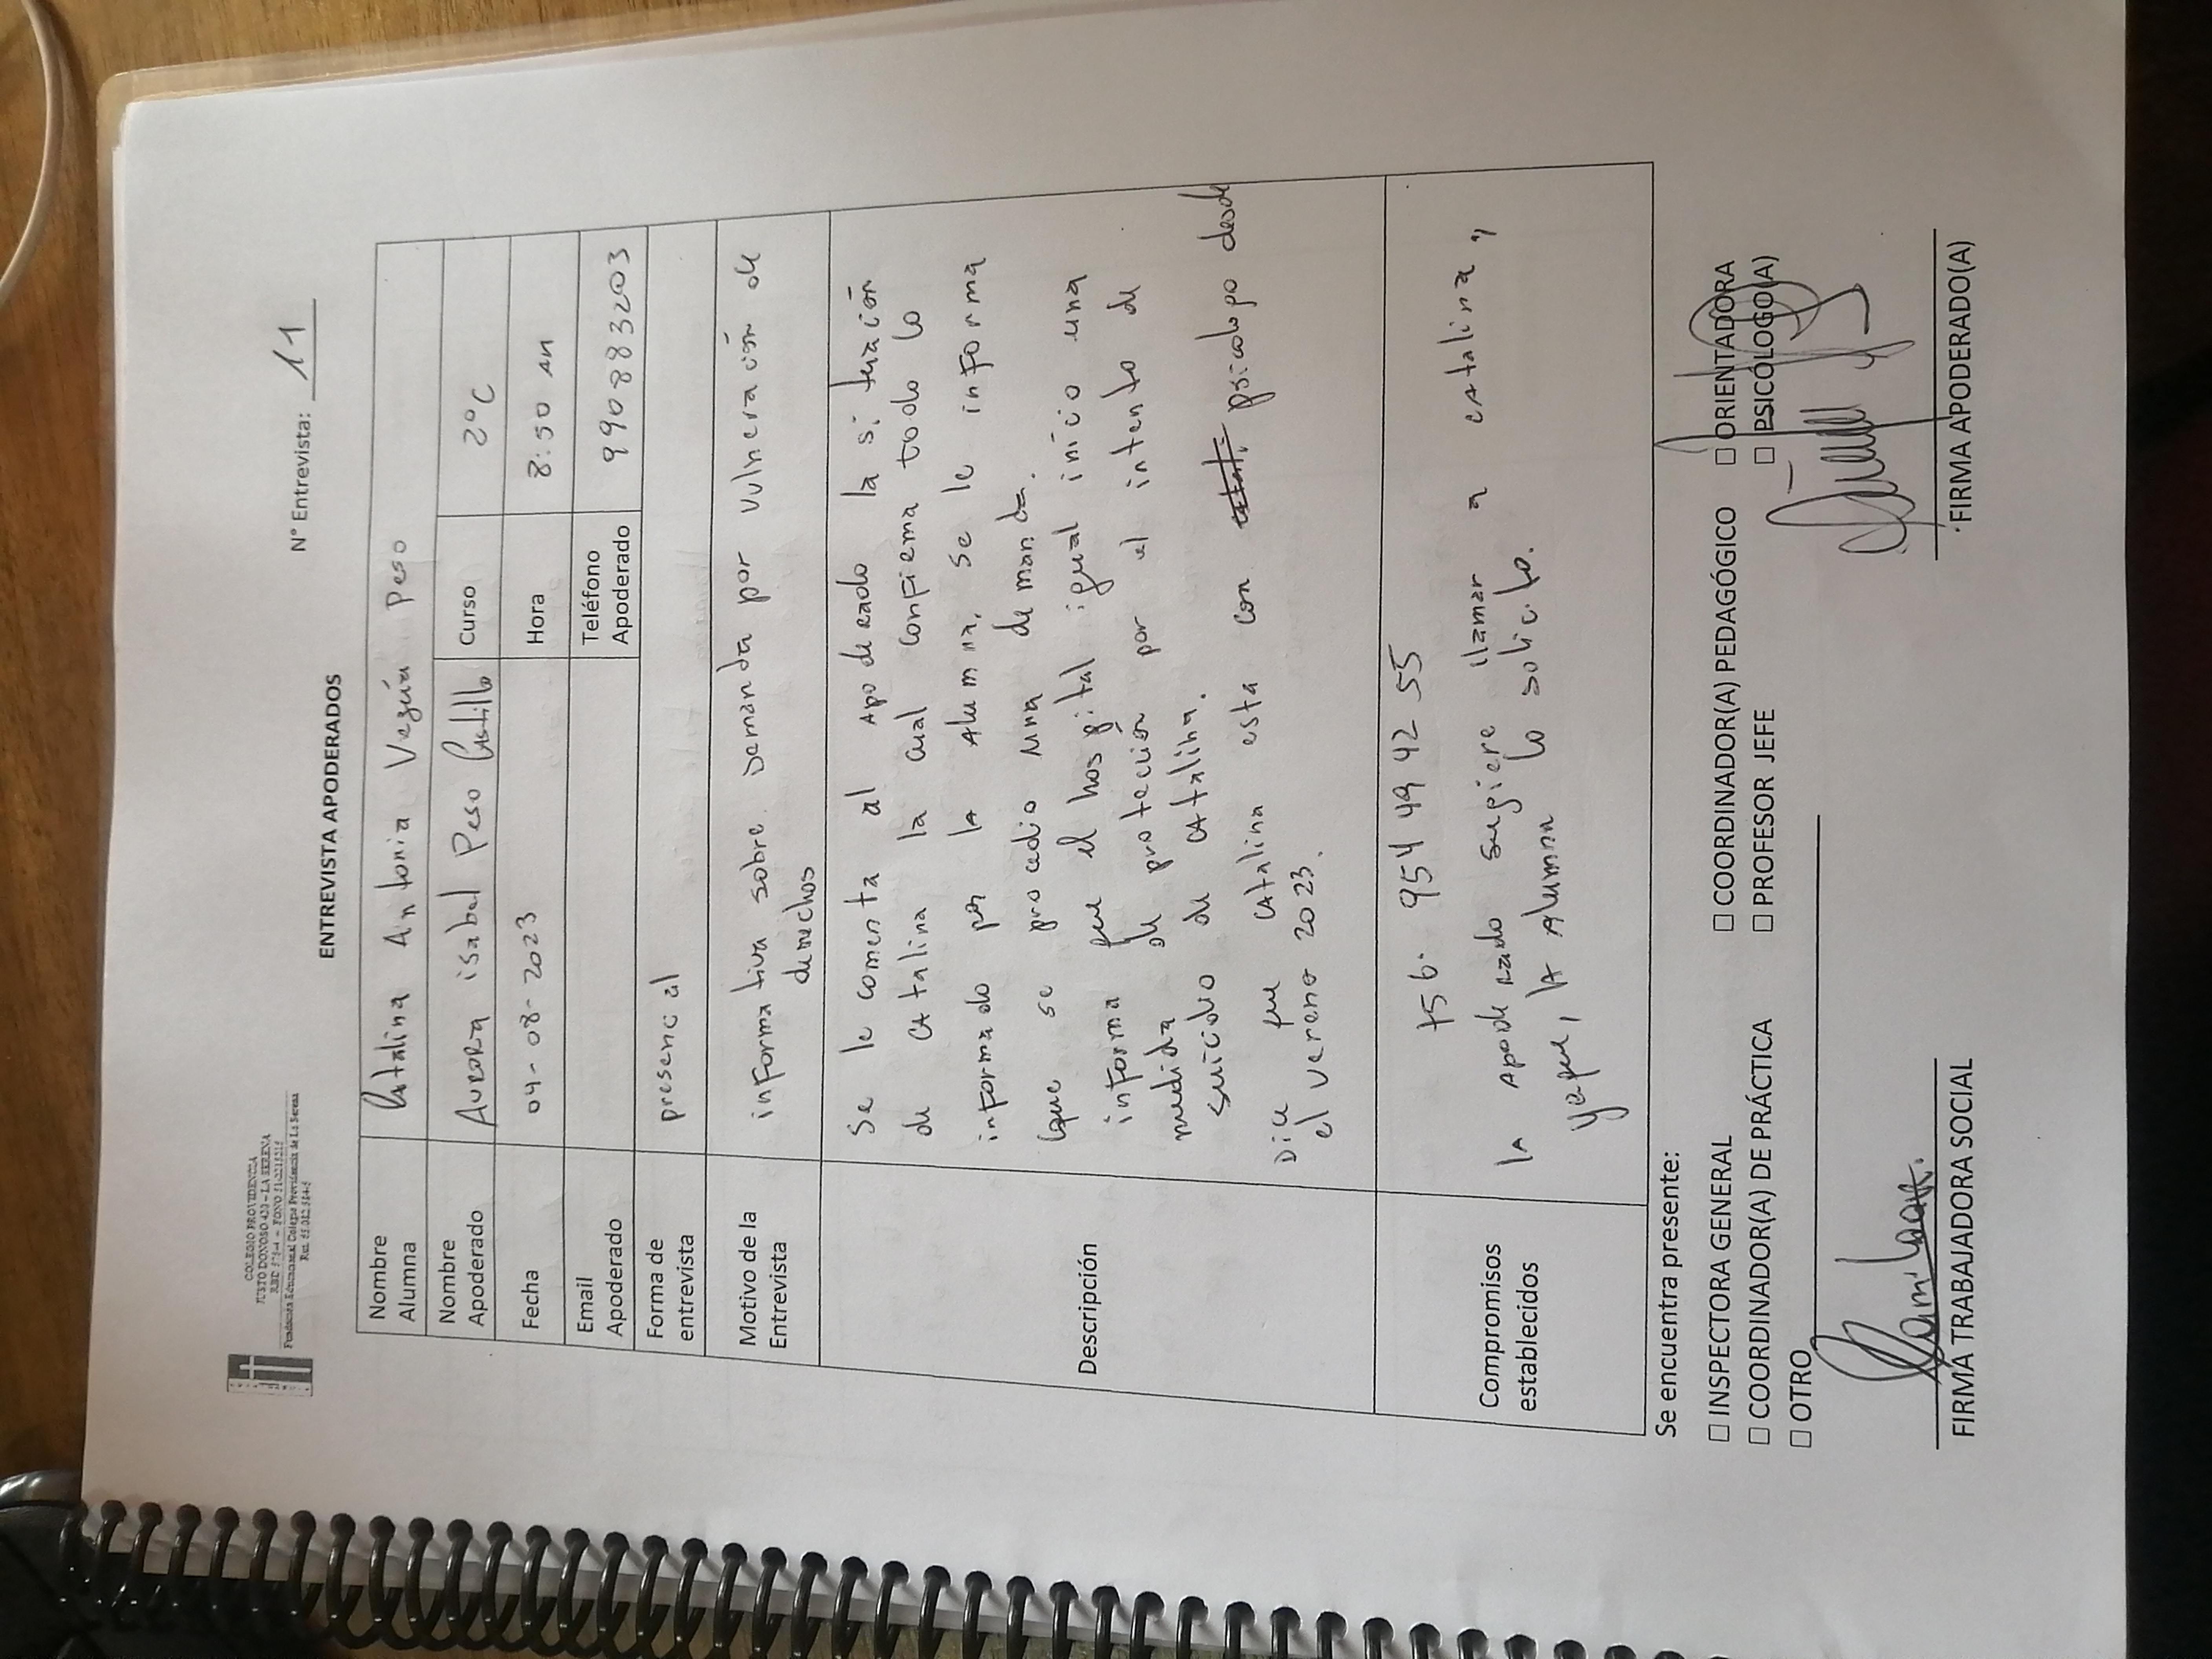 COLEGIO PROVIDENCIA
JUSTO DONOSO 420 – LA SERENA
Fundación Educacional Colegio Providencia de La Serena
N° Entrevista: 11
ENTREVISTA APODERADOS
Nombre Alumna Catalina Antonia Peso
Nombre Apoderado Aurora isabel Peso Castillo Curso 2°C
Fecha 04-08-2023 Hora 8:50 AM
Email Apoderado Teléfono Apoderado 990883203
Forma de entrevista presencial
Motivo de la Entrevista informativa sobre Demanda por vulneración de
derechos
Descripción
Se le comenta al Apoderado la situación
de CAtalina la cual confirma todo lo
informado por la Alumna, se le informa
que se procedio una demanda.
informa que el hospital igual inicio una
medida de protección por el intento de
suicidio de CAtalina.
Dice que CAtalina esta con psicologo desde
el verano 2023.
Compromisos establecidos
+56 954 49 42 55
la Apoderado sugiere llamar a CAtalina,
yaque, la Alumna lo solicito.
Se encuentra presente:
☐ INSPECTORA GENERAL ☐ COORDINADOR(A) PEDAGÓGICO ☐ ORIENTADORA
☐ COORDINADOR(A) DE PRÁCTICA ☐ PROFESOR JEFE ☐ PSICÓLOGO(A)
☐ OTRO
FIRMA TRABAJADORA SOCIAL FIRMA APODERADO(A)